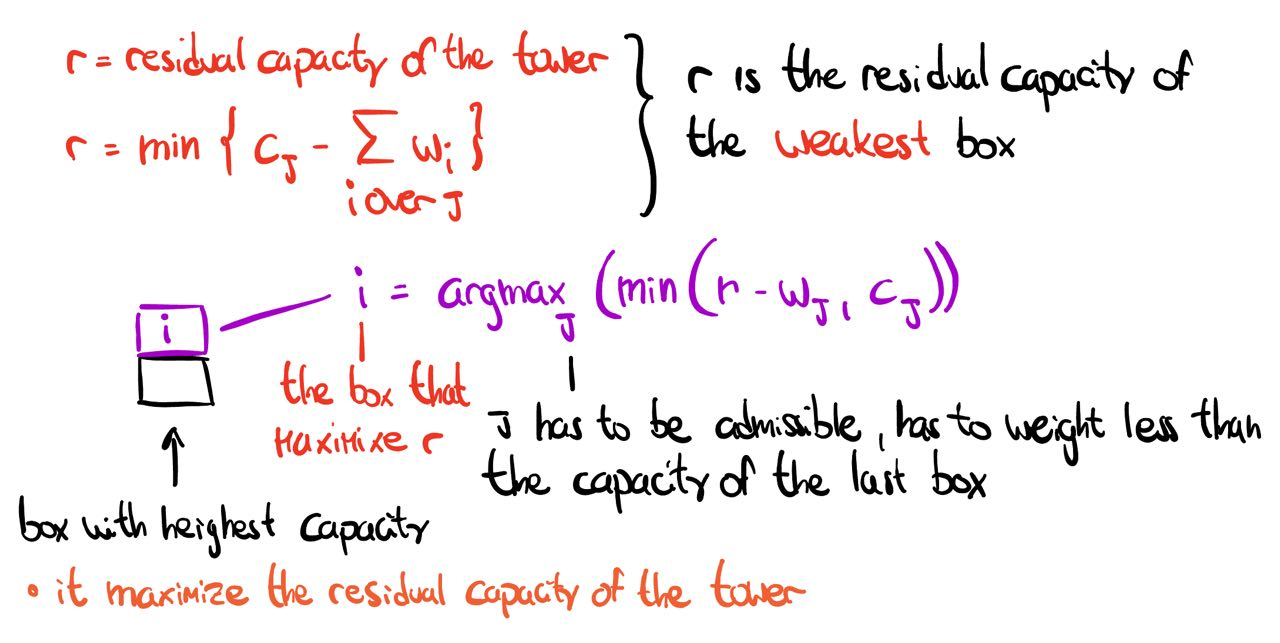 r = residual capacity of the tower
r = min { cJ - ∑ wi }
i over J
r is the residual capacity of
the weakest box
i = argmaxJ (min(r - wJ, cJ))
i
the box that
maximize r
J has to be admissible, has to weight less than
the capacity of the last box
box with heighest capacity
• it maximize the residual capacity of the tower